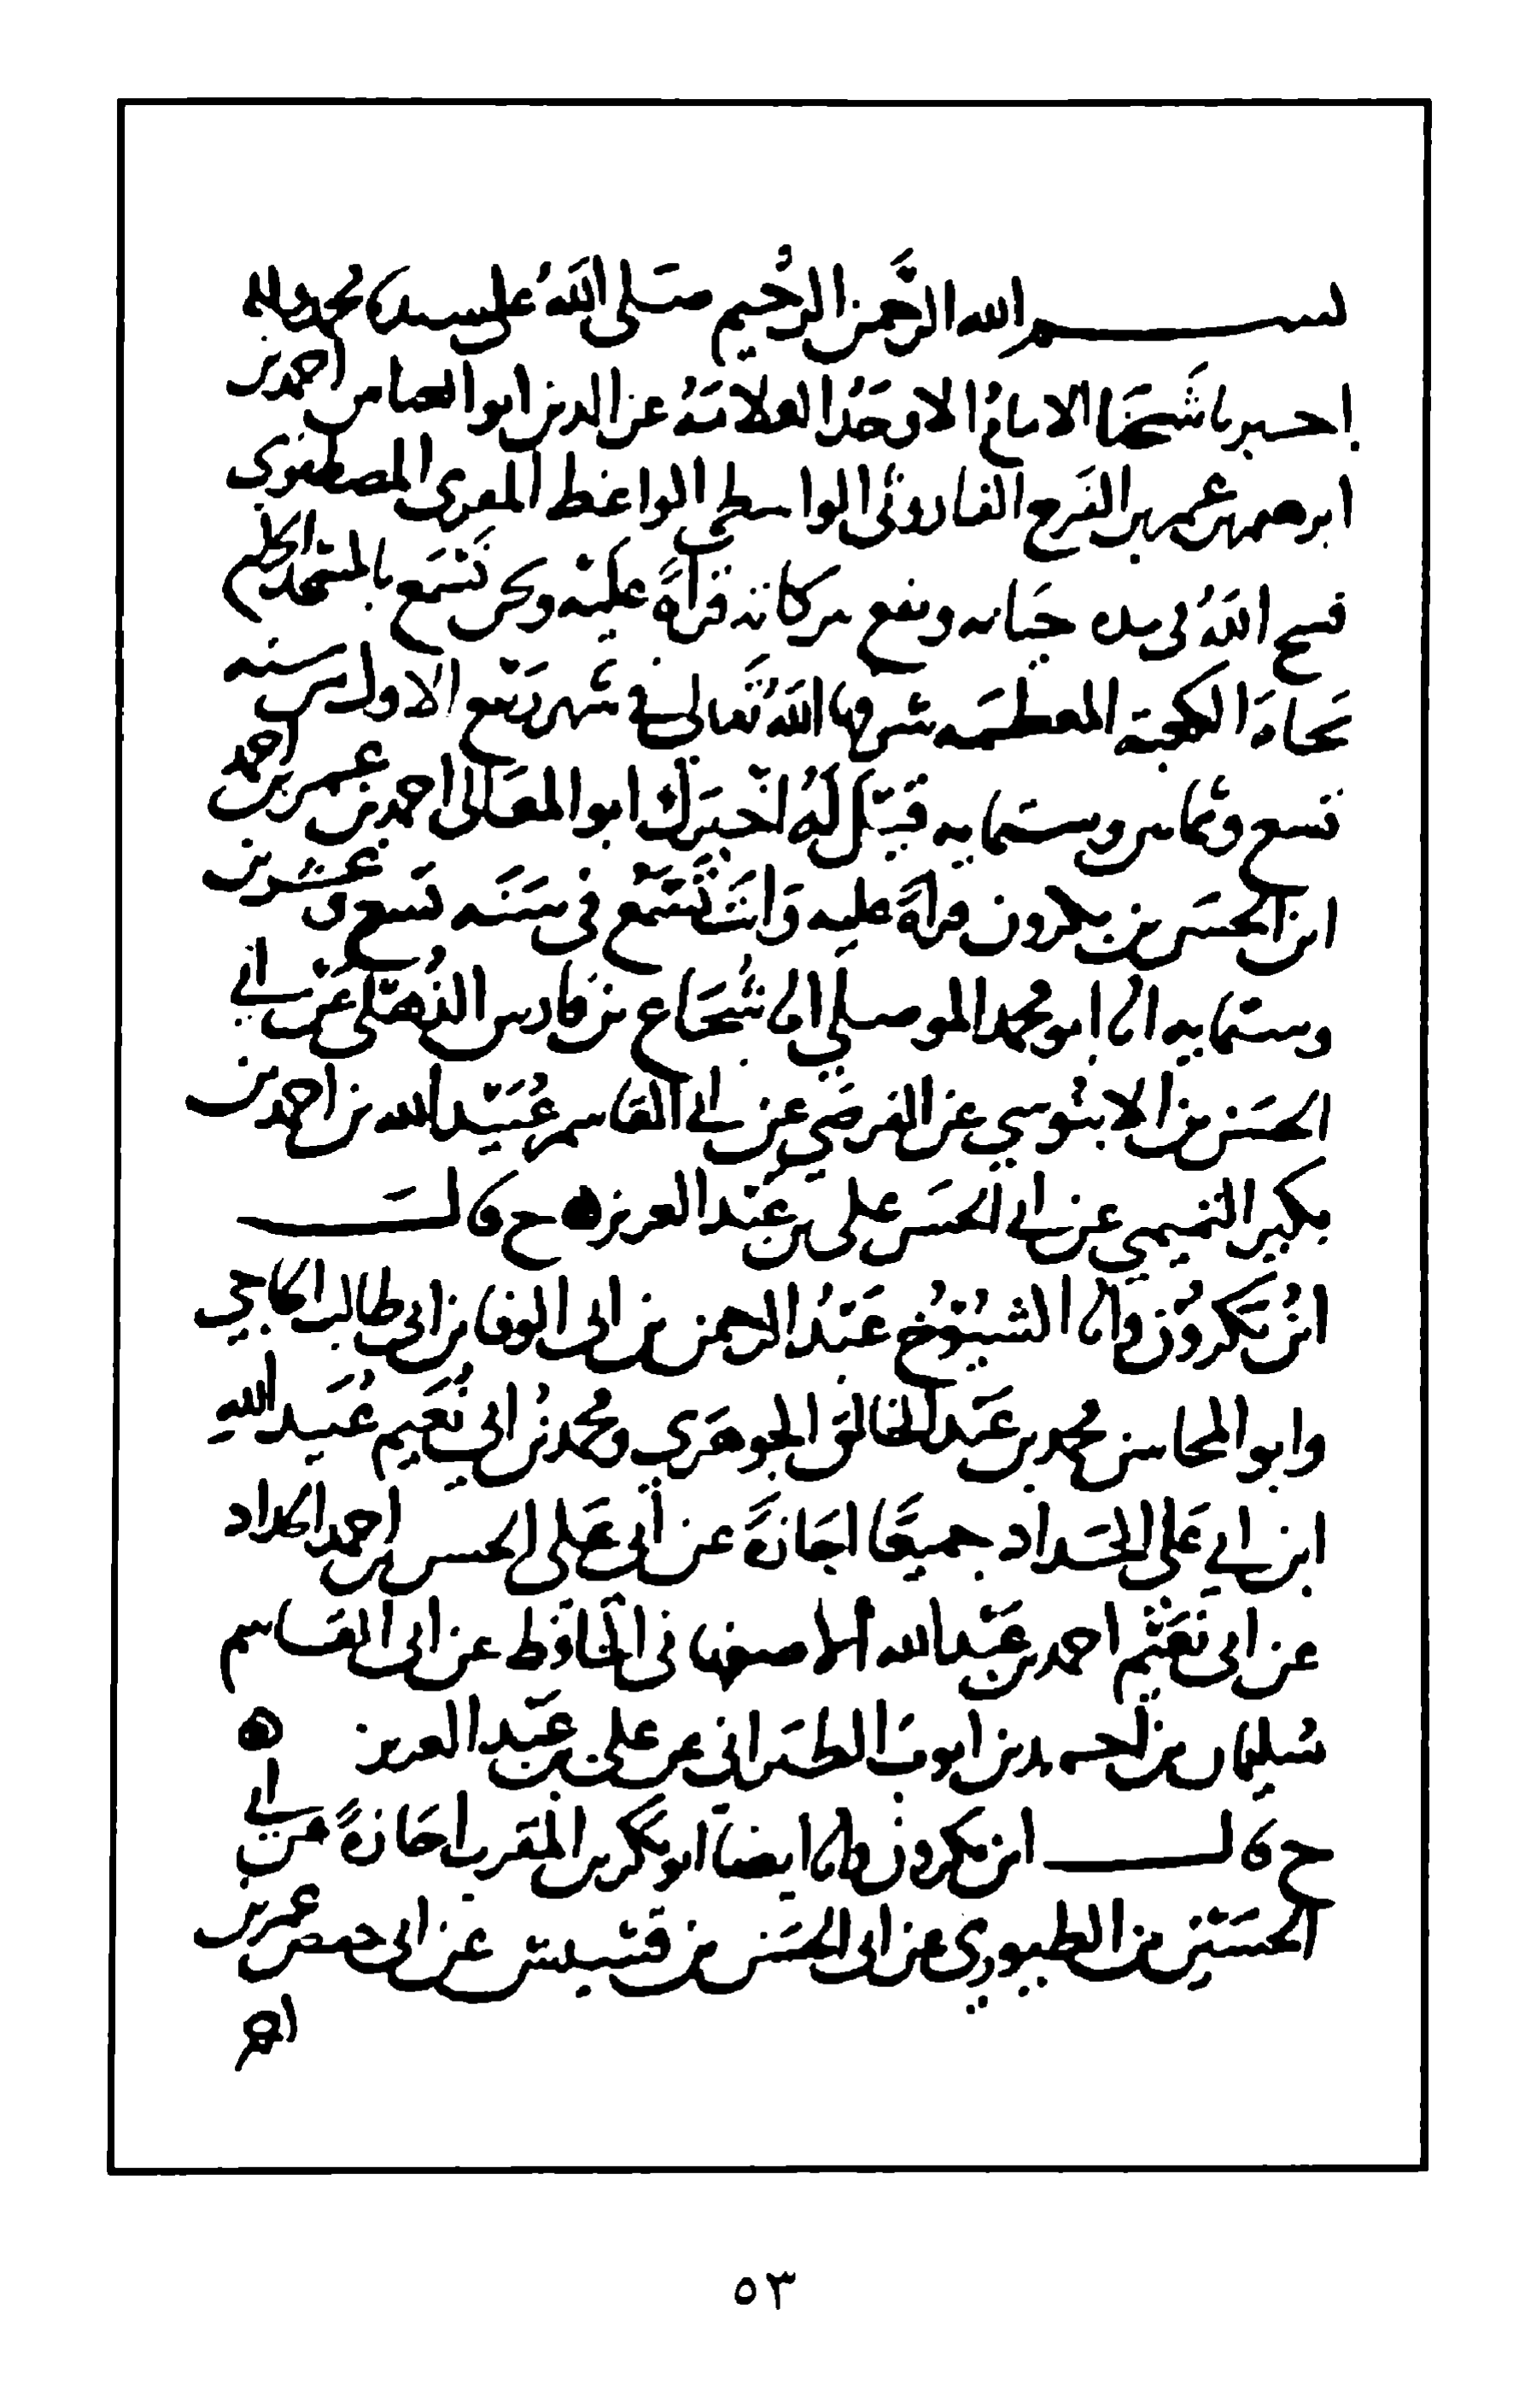 بســـــم الله الرحمن الرحيم صَلى اللهُ على سيدنا محمد واله
اخبرنا شيخنا الامامُ الاوحَدُ العلامَة عز الدين ابو العباس احمد بن
ابرهيم بن عمر بن الفرج الفاروثي الواسطي الواعظ المقرى المصطفوى
فسح اللهُ في مدة حياته ونفع ببركاته قرأةً عليْه ونحن نَسْمَع بالمسْجد الحرام
تجاهَ الكعبَة المعظمَه شرفها اللهُ تَعالى في شَهر رَبيْع الاول من سنه
تسع وثمانين وستمايه قيْلَ لهُ اخْبَركَ ابو المعَالى احمد بن عمر بن احمد
ابن الحسَن بن بكرون قراةً عليه وَانتَ تَسْمَعُ في سَنَه تسَع وعشرين
وستمايه انا ابو محمد الموصلي انا شُجَاع بن فارس الذُهْلي عَن ابي
الحسَن بن الابنُوسي عن الفرضي عن ابي القاسم عُبَيْد الله بن احمد بن
بكير التميمي عن ابي الحسَن علي بن عَبْد العزيز ح قالَـــ
ابنُ بَكرُون وانا الشيُوخ عَبْدُ الرحمن بن ابى الوفا بن ابى طالب الحاجى
وابو المحاسن محمد بن عَبْد الخالق الجوهَرى ومحمد بنُ ابي نُعَيم عُبَيد اللهِ
ابن ابي عَلي الحَداد جميعًا اجَازةً عن أبي عَلي الحسن بن احمد الحداد
عن ابي نُعَيْم احمد بن عَبْد الله الاصفهاني الحَافظ عن ابى القَاسم
سُليمان بن احمد بن ايوبَ الطبَرانى عن على بن عَبْد العزيز ه
ح قالـــــ ابن بكرون وانا ايضًا ابو بكر بن المقَرب اجَازةً عن ابي
الحسَيْن بن الطيوري عن ابى الحسَن بن قَشيش عن ابى حفص عمر بن
احمد
٥٣